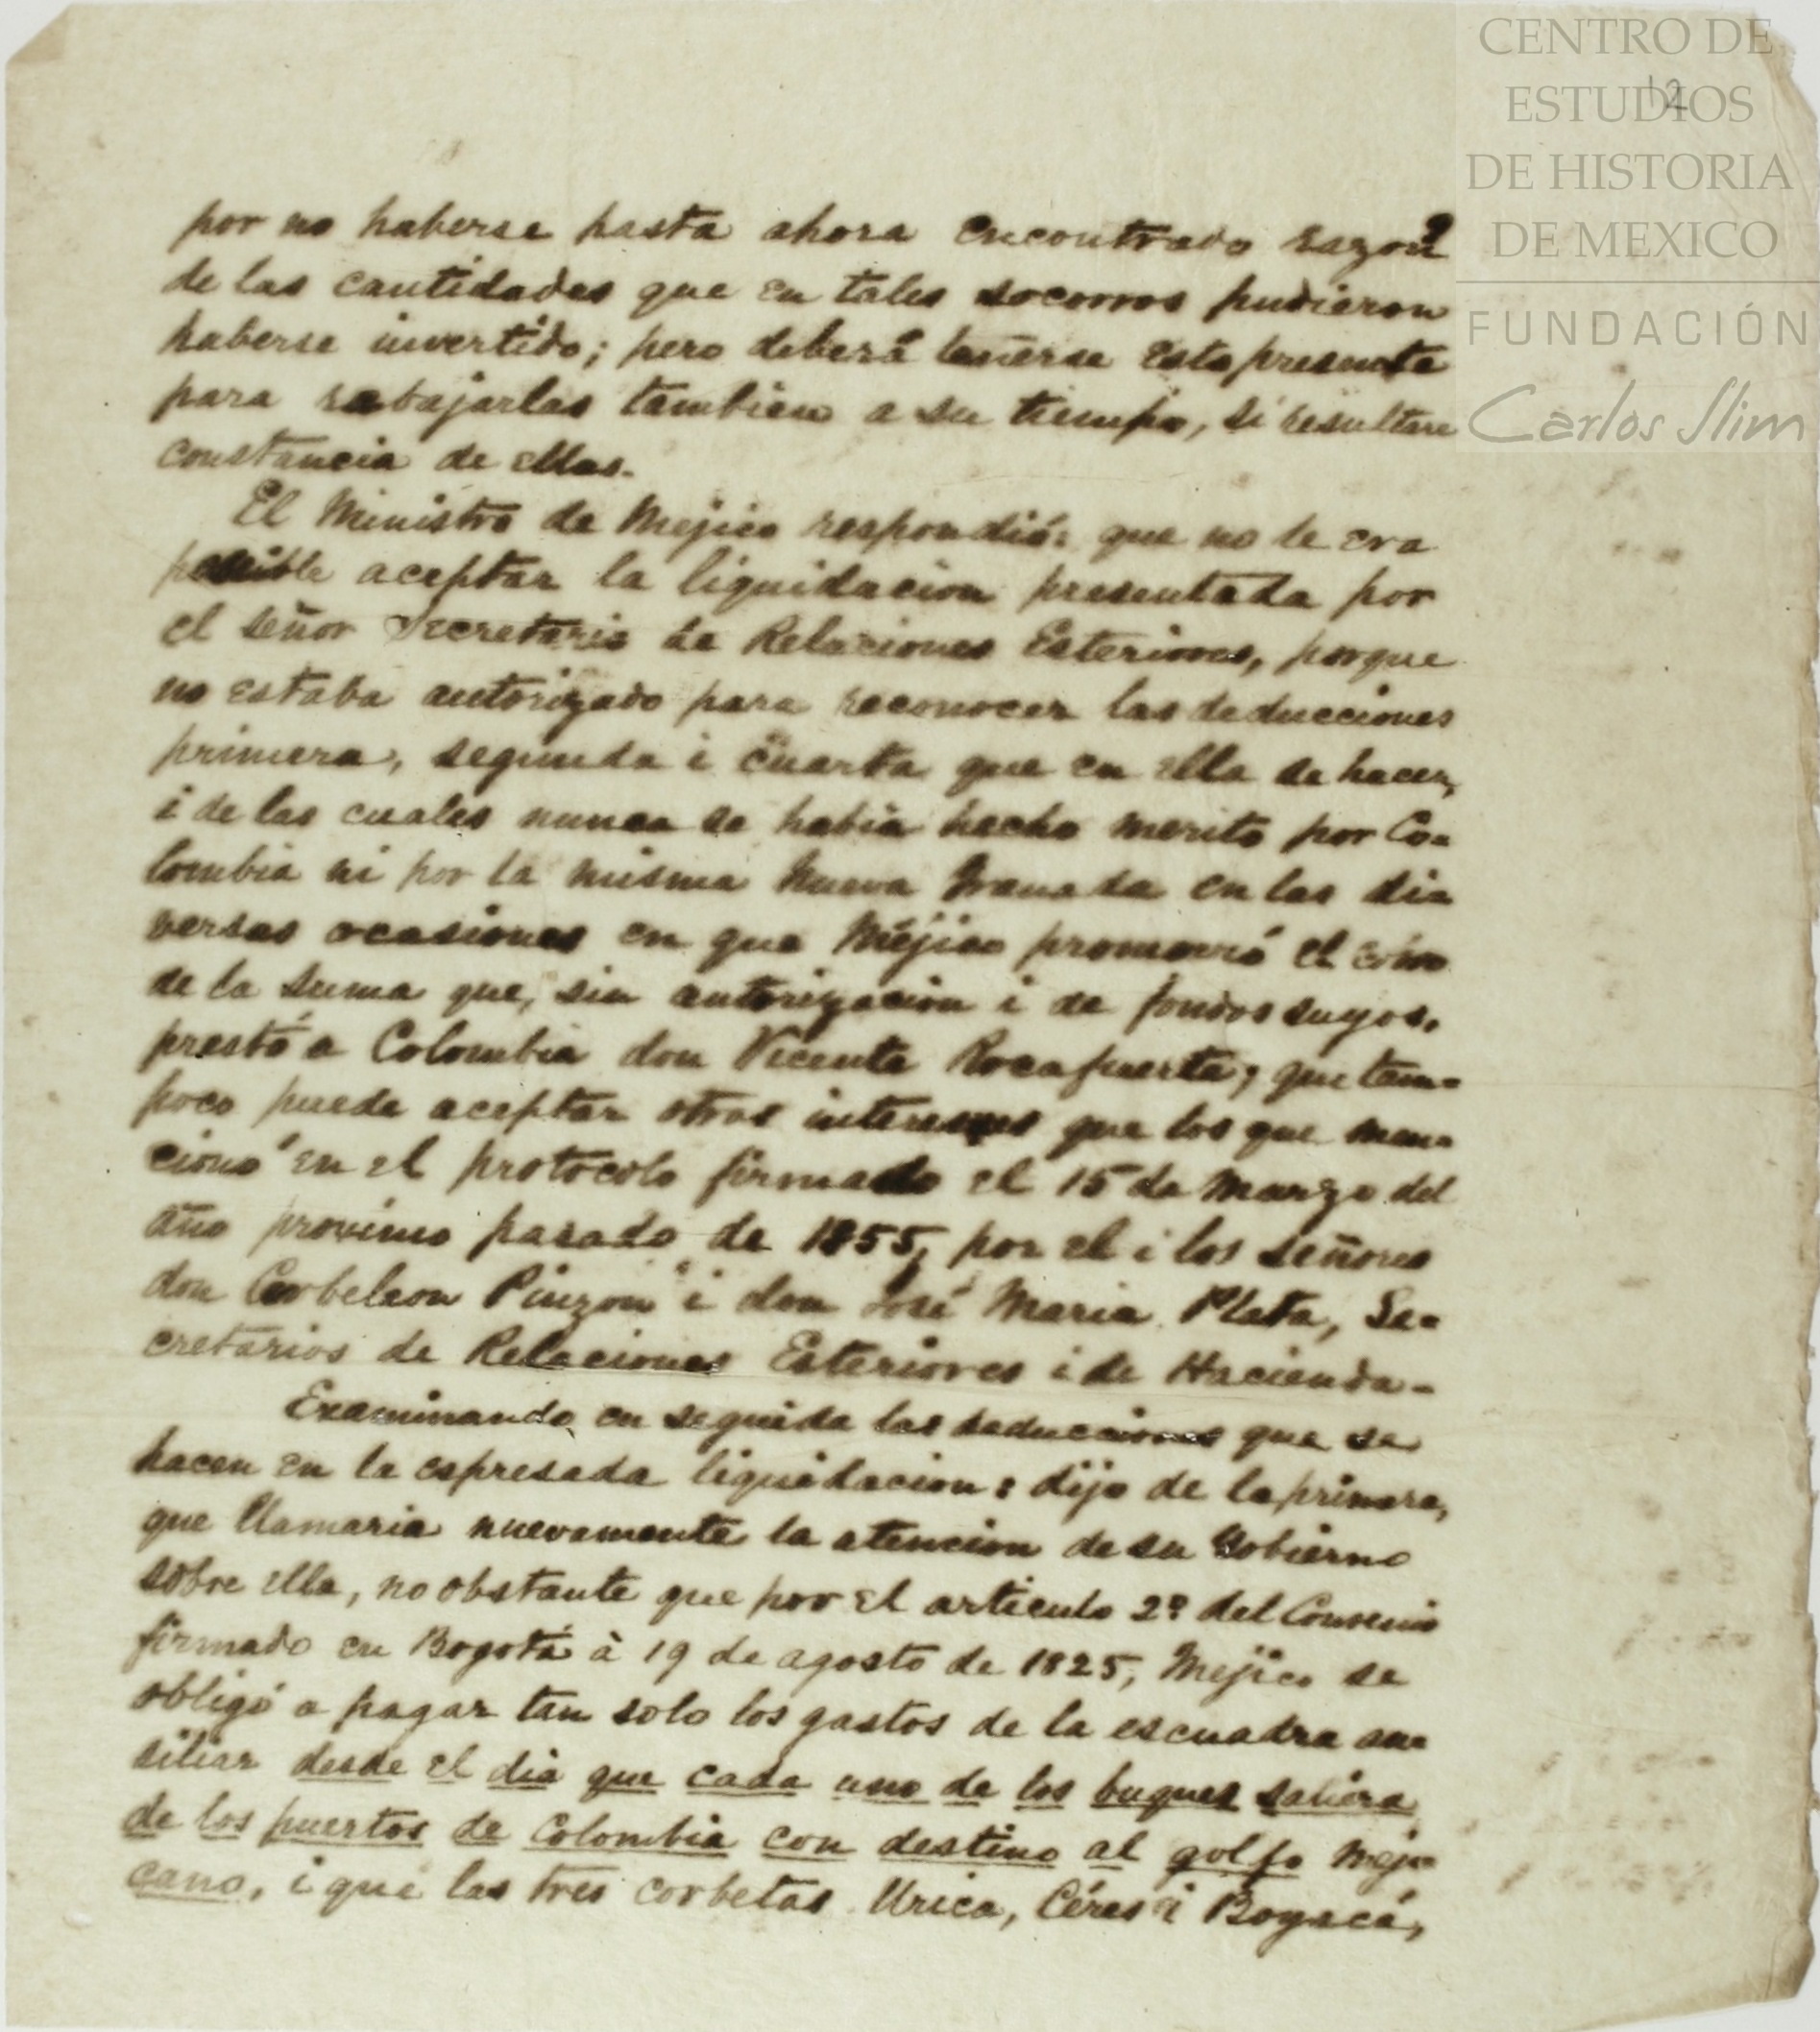 CENTRO DE
ESTUDIOS
DE HISTORIA
DE MEXICO
FUNDACIÓN
Carlos Slim
12
por no haberse hasta ahora encontrado razon
de las cantidades que en tales socorros pudieron
haberse invertido; pero deberá tenerse esto presente
para rebajarlas tambien a su tiempo, si resultare
constancia de ellas.
El Ministro de Mejico respondió: que no le era
posible aceptar la liquidacion presentada por
el señor Secretario de Relaciones Esteriores, porque
no estaba autorizado para reconocer las deducciones
primera, segunda i cuarta que en ella se hacen,
i de las cuales nunca se habia hecho merito por Co=
lombia ni por la misma Nueva Granada en las di=
versas ocasiones en que Méjico promovió el cobro
de la suma que, sin autorizacion i de fondos suyos,
prestó a Colombia don Vicente Rocafuerte; que tam=
poco puede aceptar otros intereses que los que men=
cionó en el protocolo firmado el 15 de Marzo del
año proximo pasado de 1855, por el i los señores
don Cerbeleon Pinzon i don José Maria Plata, Se=
cretarios de Relaciones Esteriores i de Hacienda-
Examinando en seguida las deducciones que se
hacen en la espresada liquidacion: dijo de la primera,
que llamaria nuevamente la atencion de su Gobierno
sobre ella, no obstante que por el articulo 2º del Convenio
firmado en Bogotá à 19 de agosto de 1825, Mejico se
obligó a pagar tan solo los gastos de la escuadra au=
siliar desde el dia que cada uno de los buques saliera
de los puertos de Colombia con destino al golfo Meji=
cano, i que las tres corbetas Urica, Céres i Boyacá,